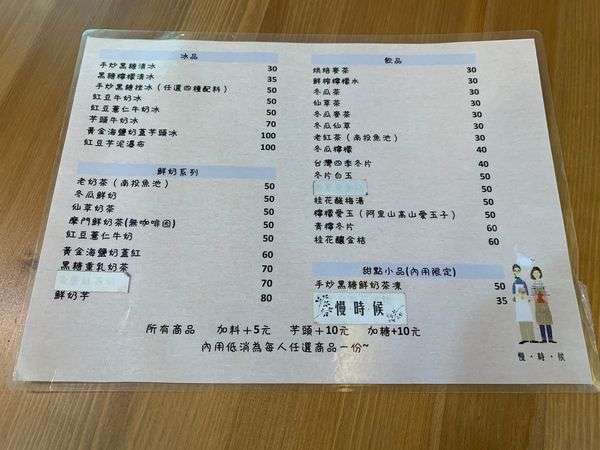 冰品
手炒黑糖清冰 30
黑糖檸檬清冰 35
手炒黑糖挫冰（任選四種配料） 50
紅豆牛奶冰 50
紅豆薏仁牛奶冰 50
芋頭牛奶冰 70
黃金海鹽奶蓋芋頭冰 100
紅豆芋泥瀑布 100
鮮奶系列
老奶茶（南投魚池） 50
冬瓜鮮奶 50
仙草奶茶 50
摩門鮮奶茶(無咖啡因) 50
紅豆薏仁牛奶 50
黃金海鹽奶蓋紅 60
黑糖重乳奶茶 70
70
鮮奶芋 80
飲品
烘焙麥茶 30
鮮榨檸檬水 30
冬瓜茶 30
仙草茶 30
冬瓜麥茶 30
冬瓜仙草 30
老紅茶（南投魚池） 30
冬瓜檸檬 40
台灣四季冬片 40
冬片白玉 50
50
桂花釀梅湯 50
檸檬愛玉（阿里山高山愛玉子） 50
青檸冬片 60
桂花釀金桔 60
甜點小品(內用限定)
手炒黑糖鮮奶茶凍 50
慢時候 35
所有商品 加料+5元 芋頭+10元 加糖+10元
內用低消為每人任選商品一份~
慢·時·候